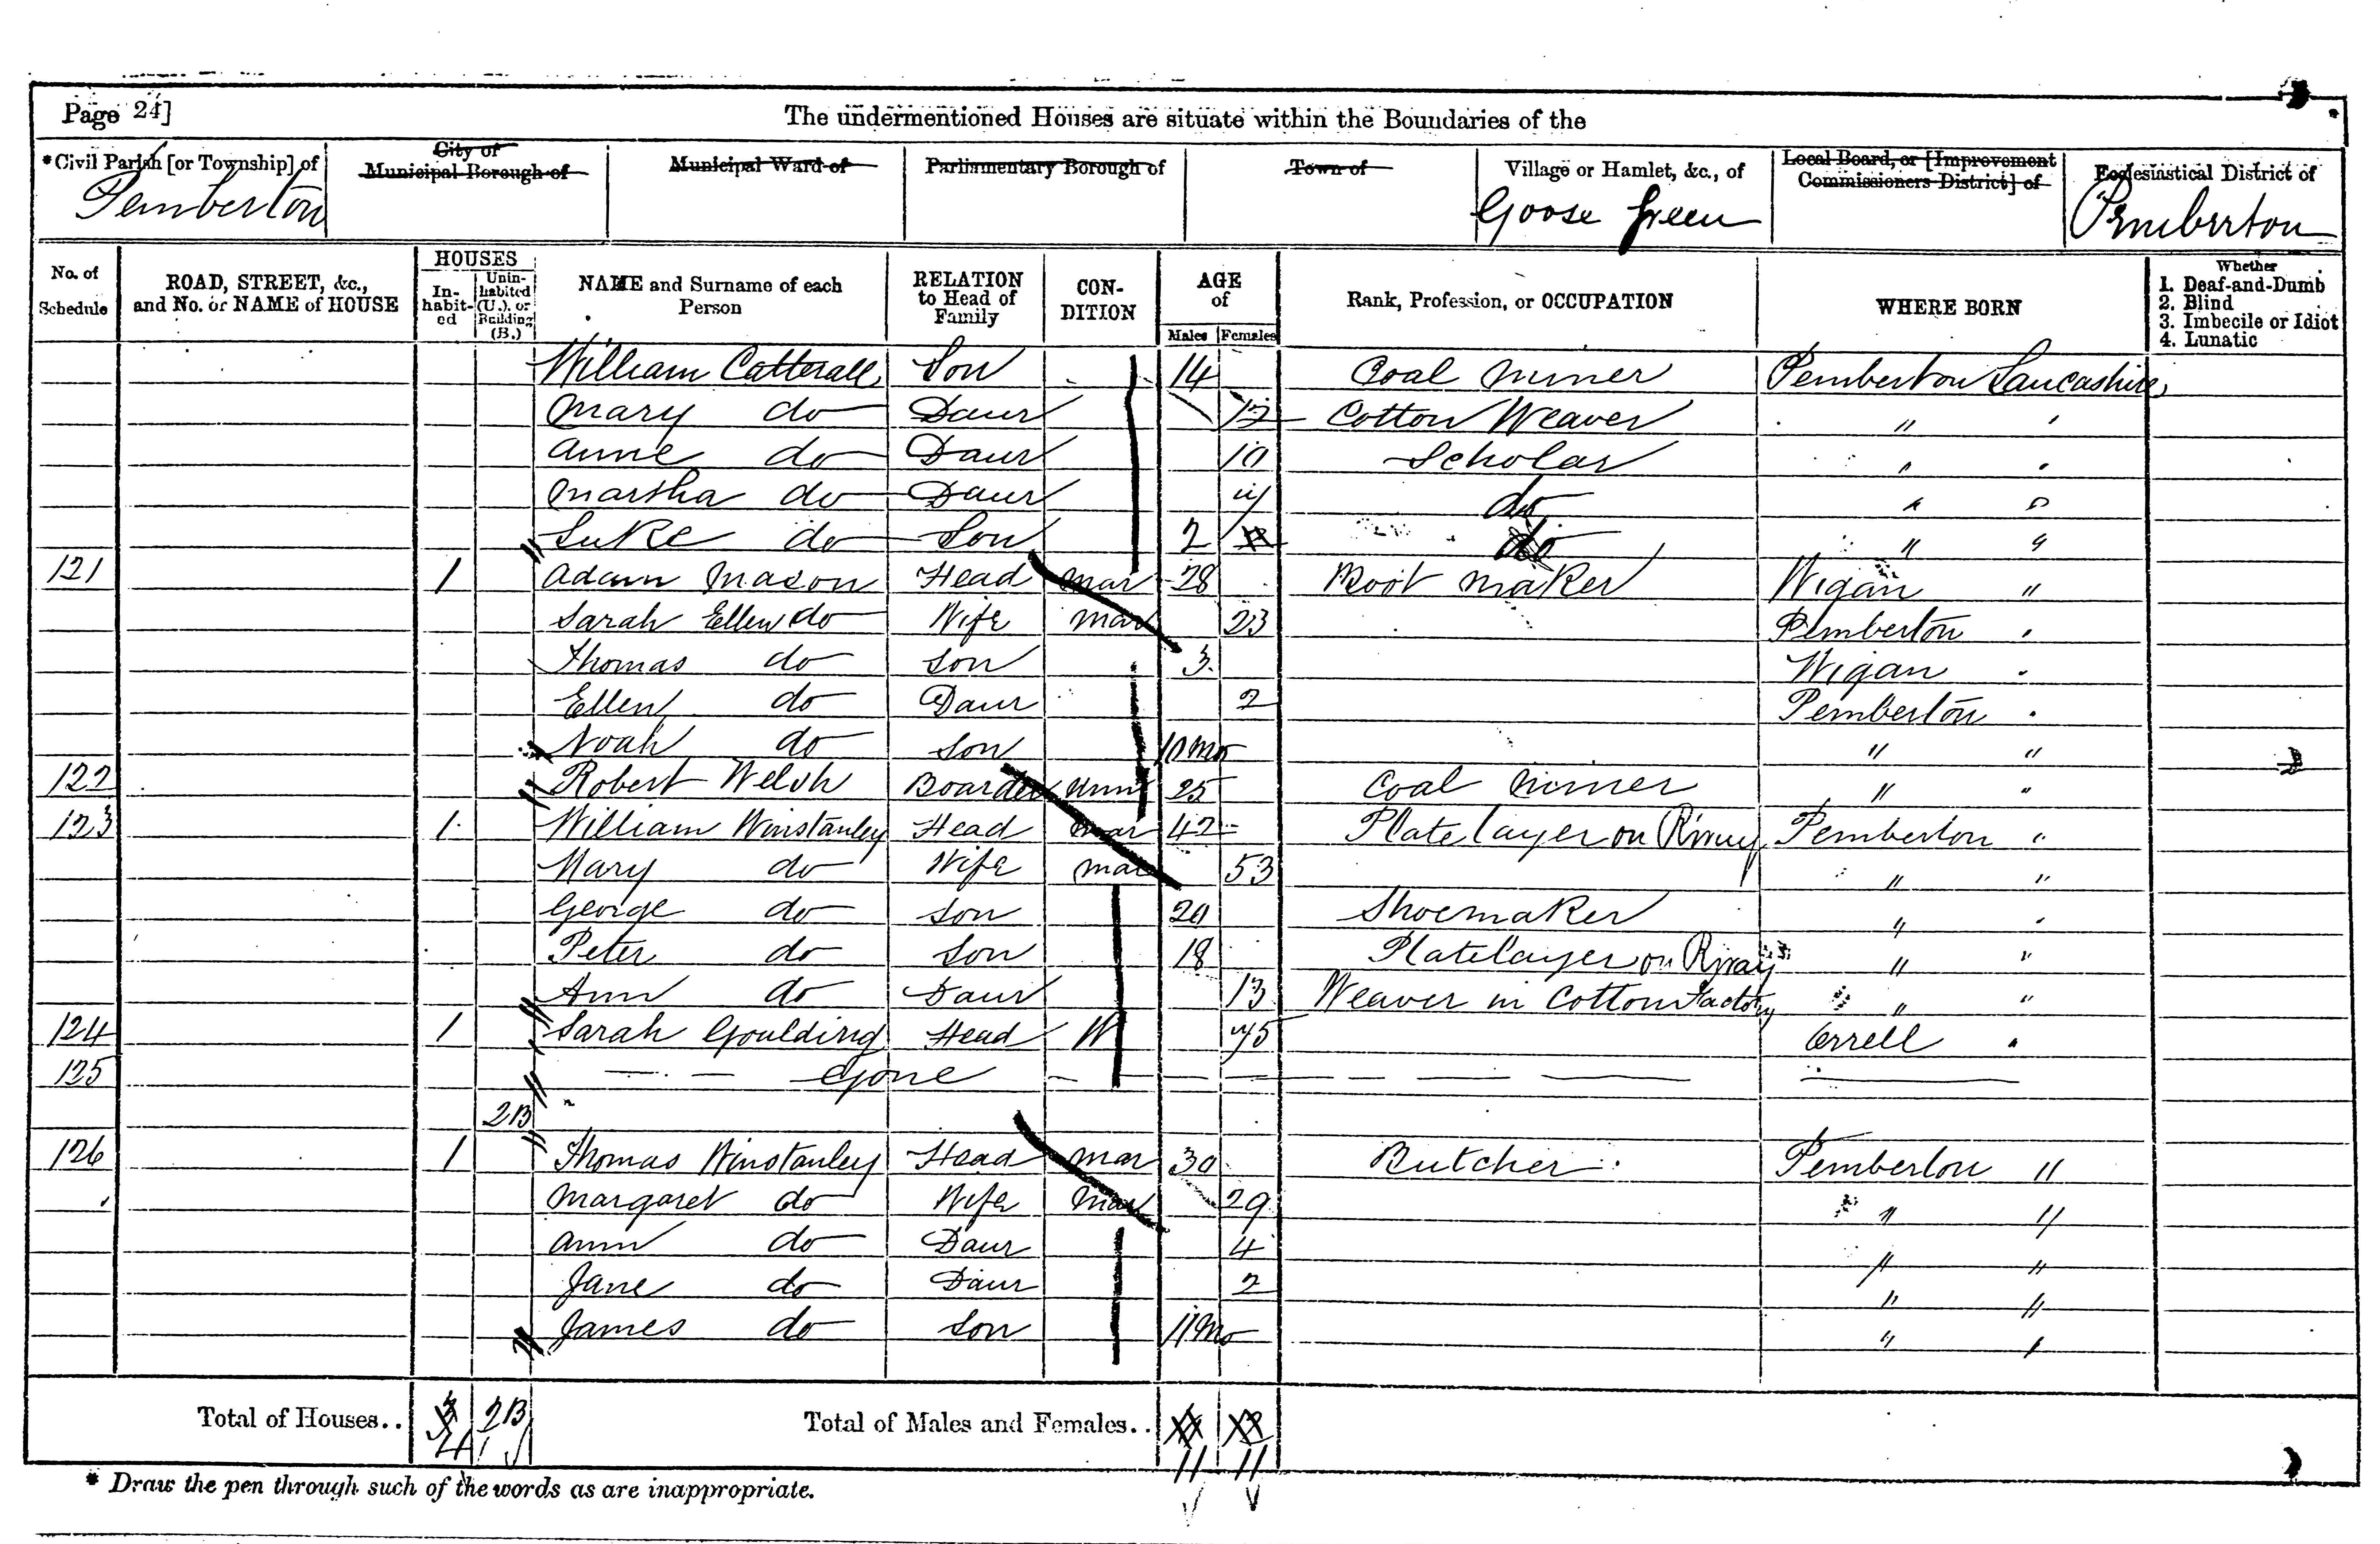 Page 24]
The undermentioned Houses are situate within the Boundaries of the
*Civil Parish [or Township] of City of Municipal Borough of Municipal Ward of Parliamentary Borough of Town of Village or Hamlet, &c., of Local Board, or [Improvement Commissioners District] of Ecclesiastical District of
Pemberton Goose Green Pemberton
No. of Schedule ROAD, STREET, &c., and No. or NAME of HOUSE HOUSES In-habit-ed Unin-habited (U.), or Building (B.) NAME and Surname of each Person RELATION to Head of Family CON-DITION AGE of Males Females Rank, Profession, or OCCUPATION WHERE BORN Whether 1. Deaf-and-Dumb 2. Blind 3. Imbecile or Idiot 4. Lunatic
William Catterall Son 14 Coal Miner Pemberton Lancashire
Mary do Daur 12 Cotton Weaver " "
Anne do Daur 10 Scholar " "
Martha do Daur 7 do " "
Luke do Son 2 do " "
121 1 Adam Mason Head Mar 28 Boot Maker Wigan "
Sarah Ellen do Wife Mar 23 Pemberton "
Thomas do Son 3 Wigan "
Ellen do Daur 2 Pemberton "
Noah do Son 10 Mo " "
122 Robert Welsh Boarder Unm 25 Coal Miner " "
123 1 William Winstanley Head Mar 42 Platelayer on Rway Pemberton "
Mary do Wife Mar 53 " "
George do Son 20 Shoemaker " "
Peter do Son 18 Platelayer on Rway " "
Ann do Daur 13 Weaver in Cotton Factory " "
124 1 Sarah Goulding Head W 75 Orrell "
125 — — Gone — — — — — —
2B
126 1 Thomas Winstanley Head Mar 30 Butcher Pemberton "
Margaret do Wife Mar 29 " "
Ann do Daur 4 " "
Jane do Daur 2 " "
James do Son 11 Mo " "
Total of Houses.. 4 2B Total of Males and Females.. 11 11
* Draw the pen through such of the words as are inappropriate.